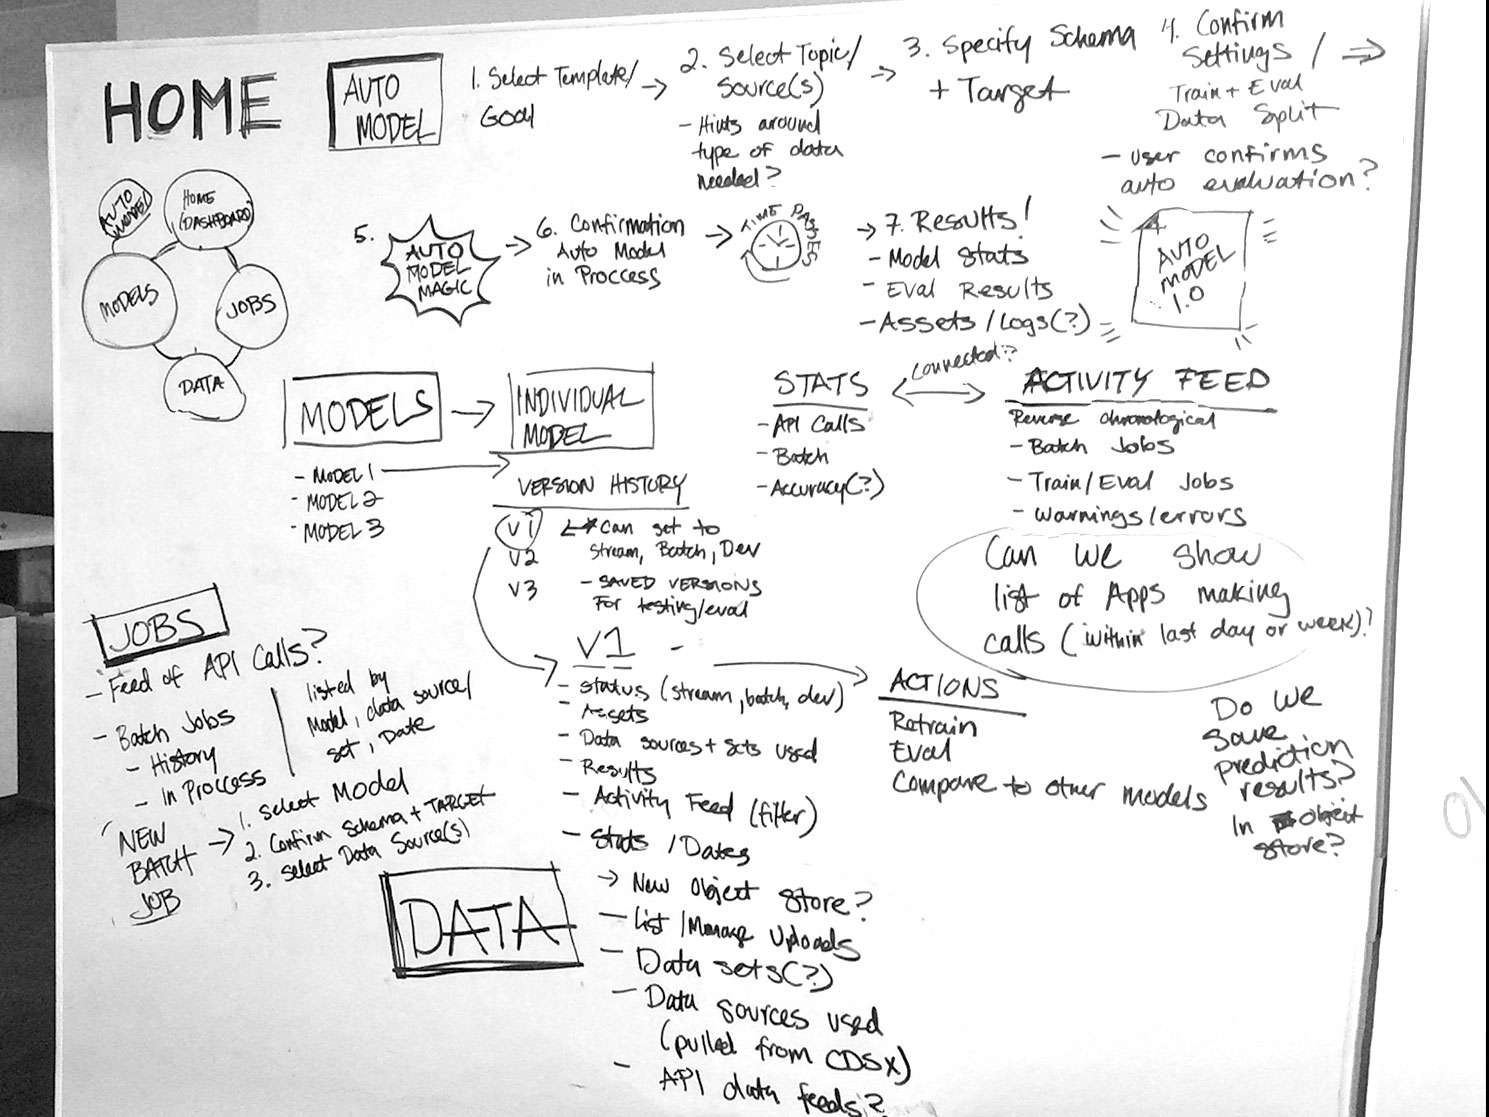 HOME
AUTO
MODEL
1. Select Template/
Goal
2. Select Topic/
Source(s)
- Hints around
type of data
needed?
3. Specify Schema
+ Target
4. Confirm
Settings /
Train + Eval
Data Split
- User confirms
auto evaluation?
AUTO
MODEL
HOME
(DASHBOARD)
MODELS
JOBS
DATA
5.
AUTO
MODEL
MAGIC
6. Confirmation
Auto Model
in Proccess
TIME PASSES
7. Results!
- Model Stats
- Eval Results
- Assets/Logs(?)
AUTO
MODEL
1.0
MODELS
- MODEL 1
- MODEL 2
- MODEL 3
INDIVIDUAL
MODEL
VERSION HISTORY
V1
V2
V3
* Can set to
Stream, Batch, Dev
- SAVED VERSIONS
For testing/eval
STATS
- API Calls
- Batch
- Accuracy(?)
connected?
ACTIVITY FEED
Reverse chronological
- Batch Jobs
- Train/Eval Jobs
- Warnings/errors
Can we show
list of Apps making
calls (within last day or week)?
JOBS
- Feed of API Calls?
- Batch Jobs
- History
- In Proccess
listed by
Model, data source/
set, Date
NEW
BATCH
JOB
1. Select Model
2. Confirm Schema + TARGET
3. Select Data Source(s)
V1 -
- Status (stream, batch, dev)
- Assets
- Data sources + Sets used
- Results
- Activity Feed (filter)
- Stats / Dates
ACTIONS
Retrain
Eval
Compare to other models
Do We
Save
prediction
results?
In object
store?
DATA
New Object Store?
- List/Manage Uploads
- Data sets(?)
- Data sources used
(pulled from CDSX)
- API data feeds?